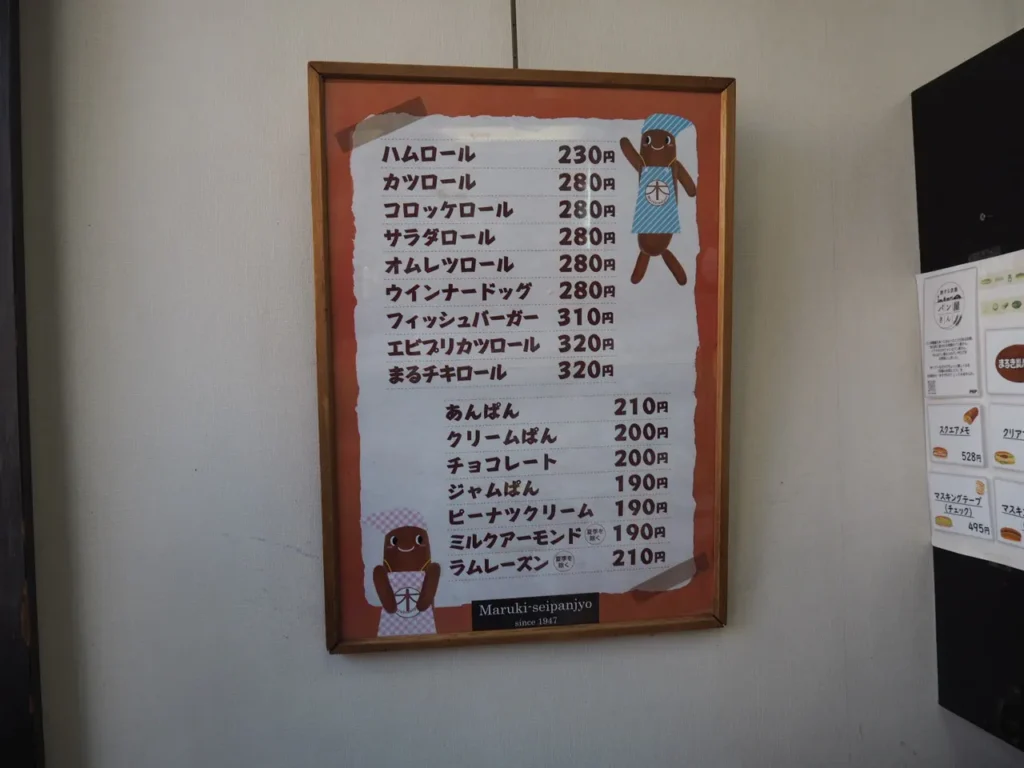 ハムロール 230円
カツロール 280円
コロッケロール 280円
サラダロール 280円
オムレツロール 280円
ウインナードッグ 280円
フィッシュバーガー 310円
エビプリカツロール 320円
まるチキロール 320円
あんぱん 210円
クリームぱん 200円
チョコレート 200円
ジャムぱん 190円
ピーナツクリーム 190円
ミルクアーモンド 夏季を除く 190円
ラムレーズン 夏季を除く 210円
木
木
Maruki-seipanjyo
since 1947
パン屋
スクエアメモ
528円
マスキングテープ
(チェック)
495円